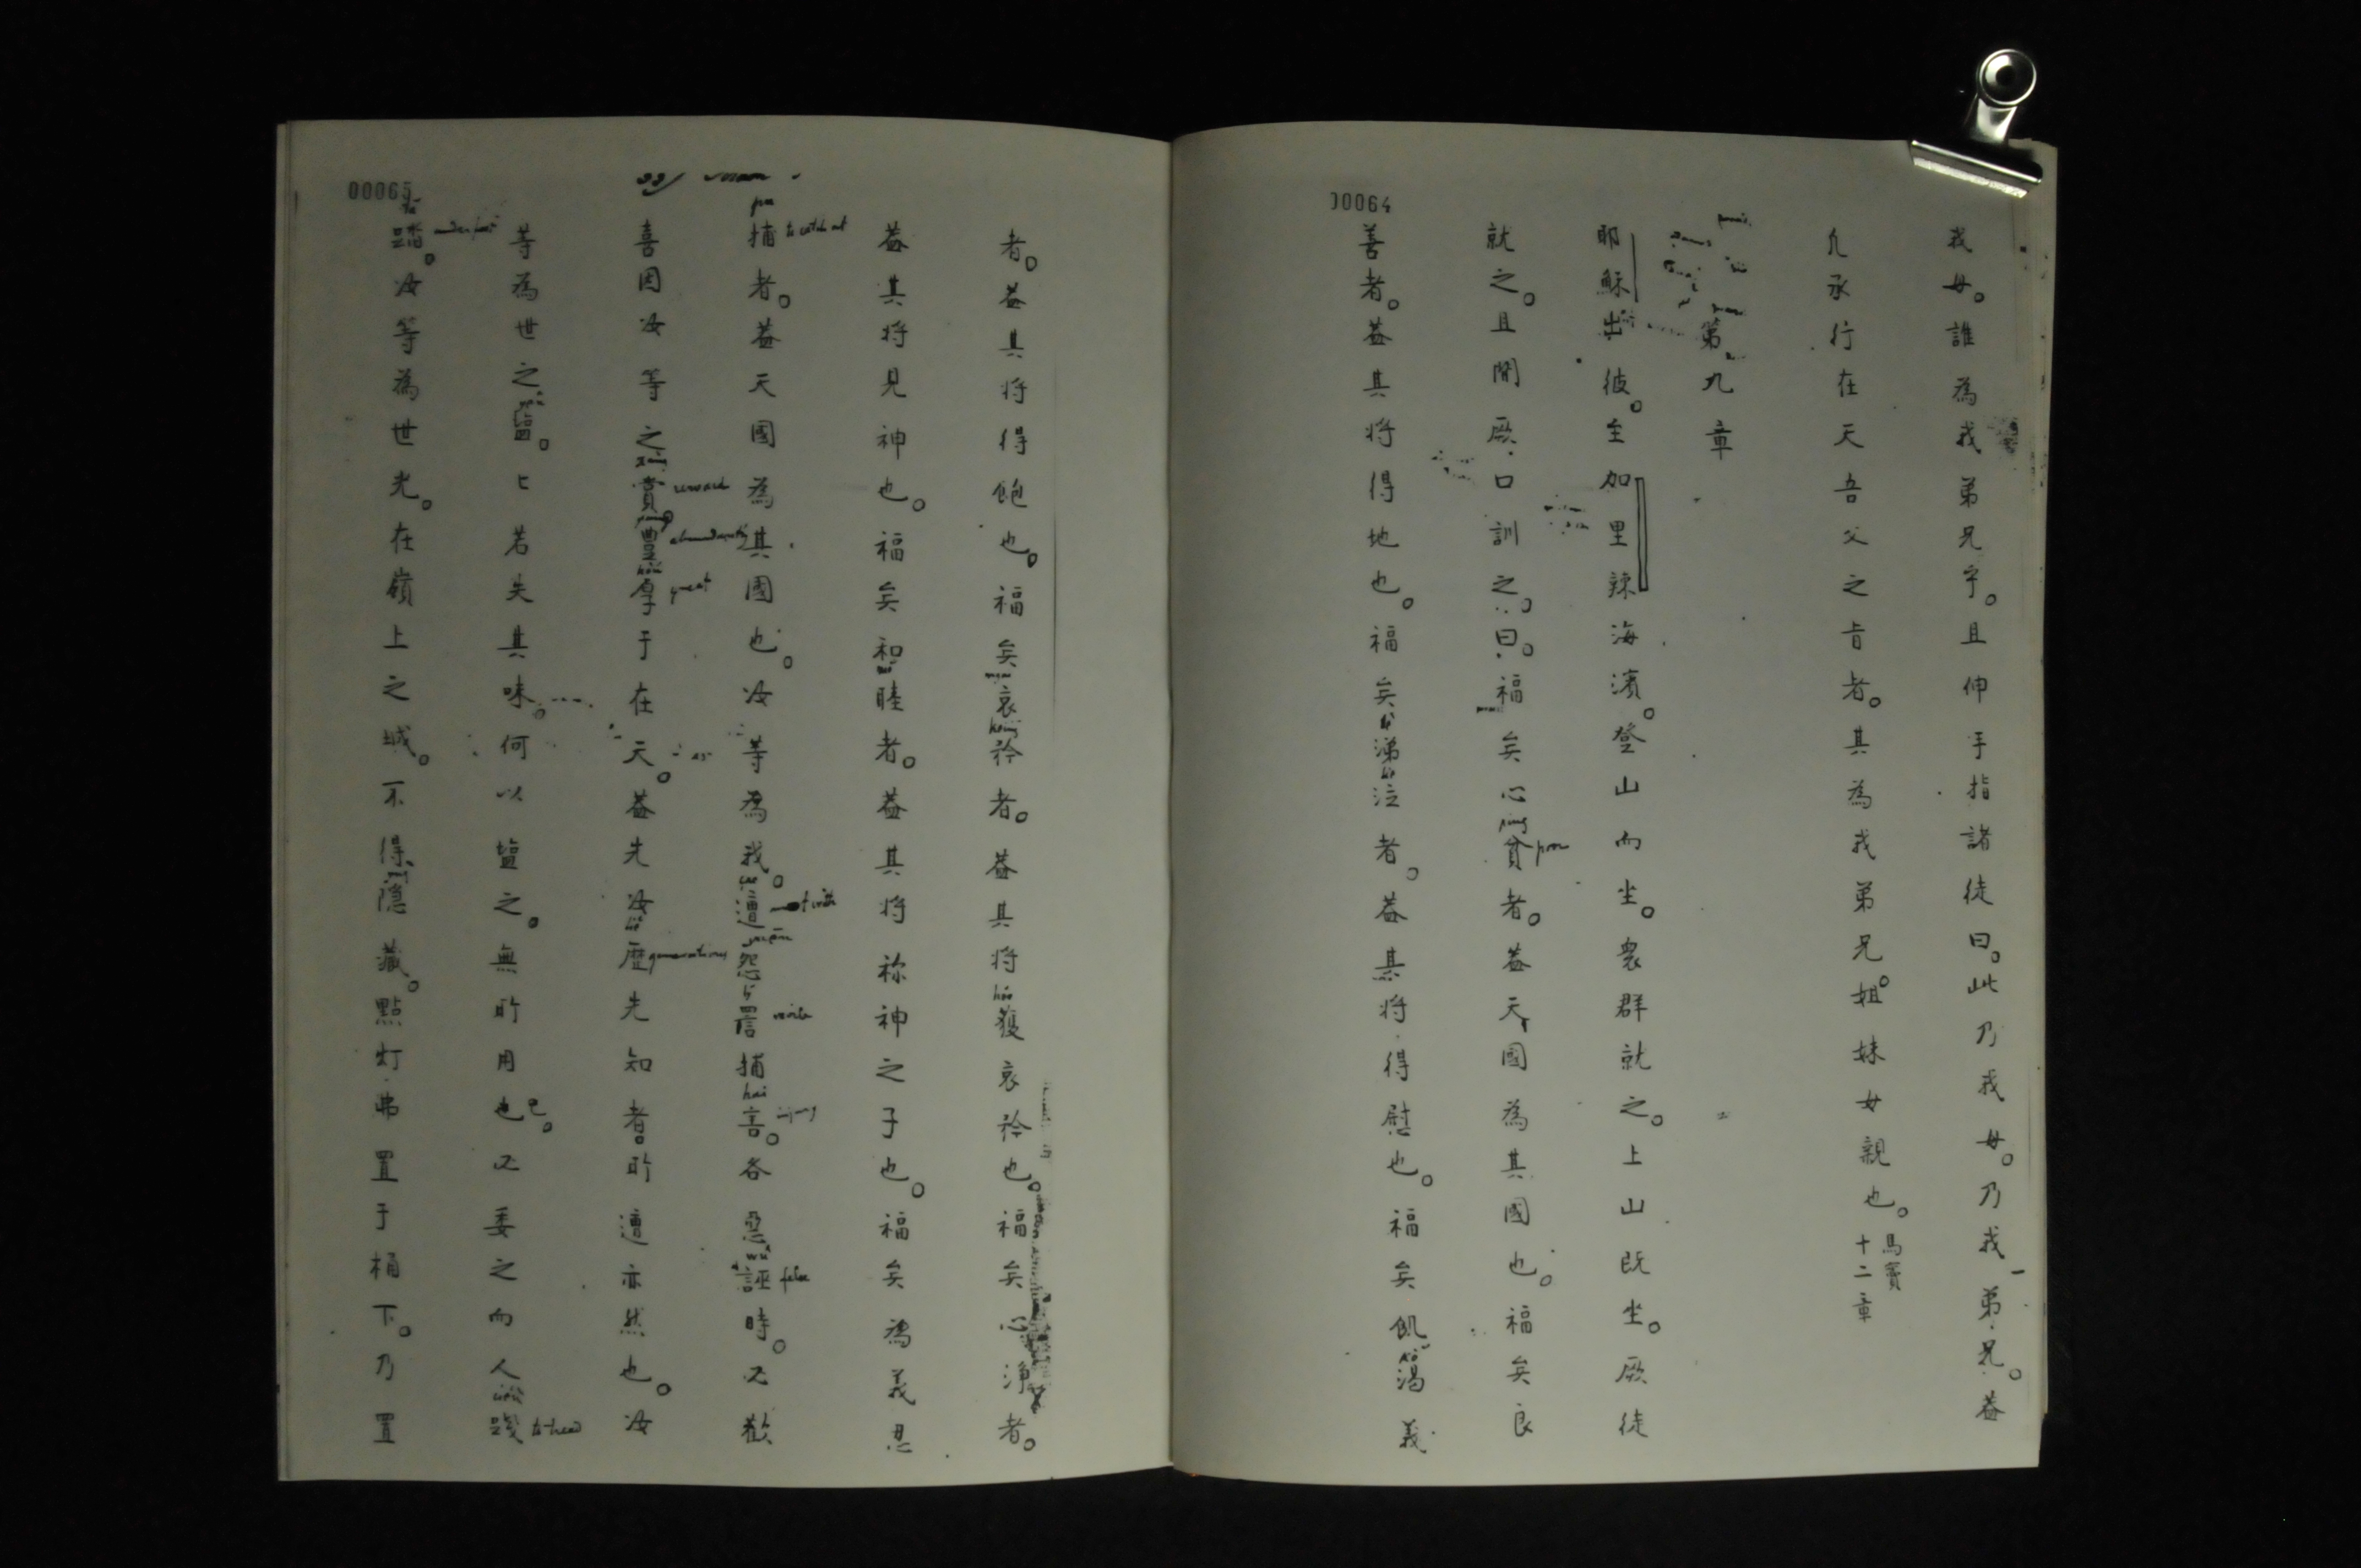 00064
我母。誰為我弟兄乎。且伸手指諸徒曰。此乃我母。乃我弟兄。蓋
凢承行在天吾父之旨者。其為我弟兄。姐妹女親也。馬竇十二章
第九章
耶穌出彼。至加里辣海濱。登山而坐。衆群就之。上山既坐。厥徒
就之。且開厥口訓之。曰。福矣心貧者。蓋天國為其國也。福矣良
poor
善者。蓋其将得地也。福矣涕泣者。蓋其将得慰也。福矣飢渴義
00065
者。蓋其将得飽也。福矣哀矜者。蓋其将獲哀矜也。福矣心浄者。
蓋其将見神也。福矣和睦者。蓋其将祢神之子也。福矣為義忍
捕者。蓋天國為其國也。汝等為我。遭怨詈捕害。各惡誣時。又歡
to catch
revile
false
喜因汝等之賞豐厚于在天。蓋先汝歷先知者。所遭亦然也。汝
reward
abundantly
great
generations
等為世之鹽。匕若失其味。何以鹽之。無所用也已。又委之而人踐
to tread
踏。汝等為世光。在嶺上之城。不得隱藏。點灯弗置于桶下。乃置
under foot